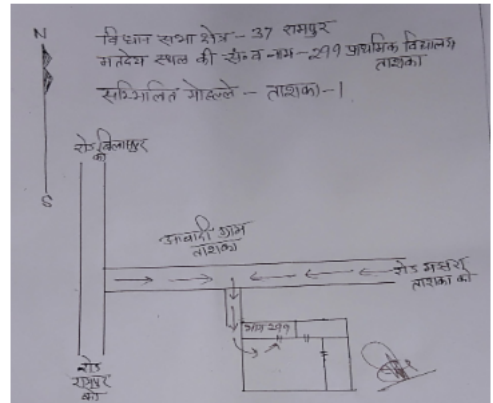 N
विधान सभा क्षेत्र - 37 रामपुर
मतदेय स्थल की सं० व नाम - 299 प्राथमिक विद्यालय
ताशका
सम्मिलित मोहल्ले - ताशका - 1
S
रोड बिलासपुर
को
आबादी ग्राम
ताशका
रोड
ताशका को
भाग 299
रोड
रामपुर
को